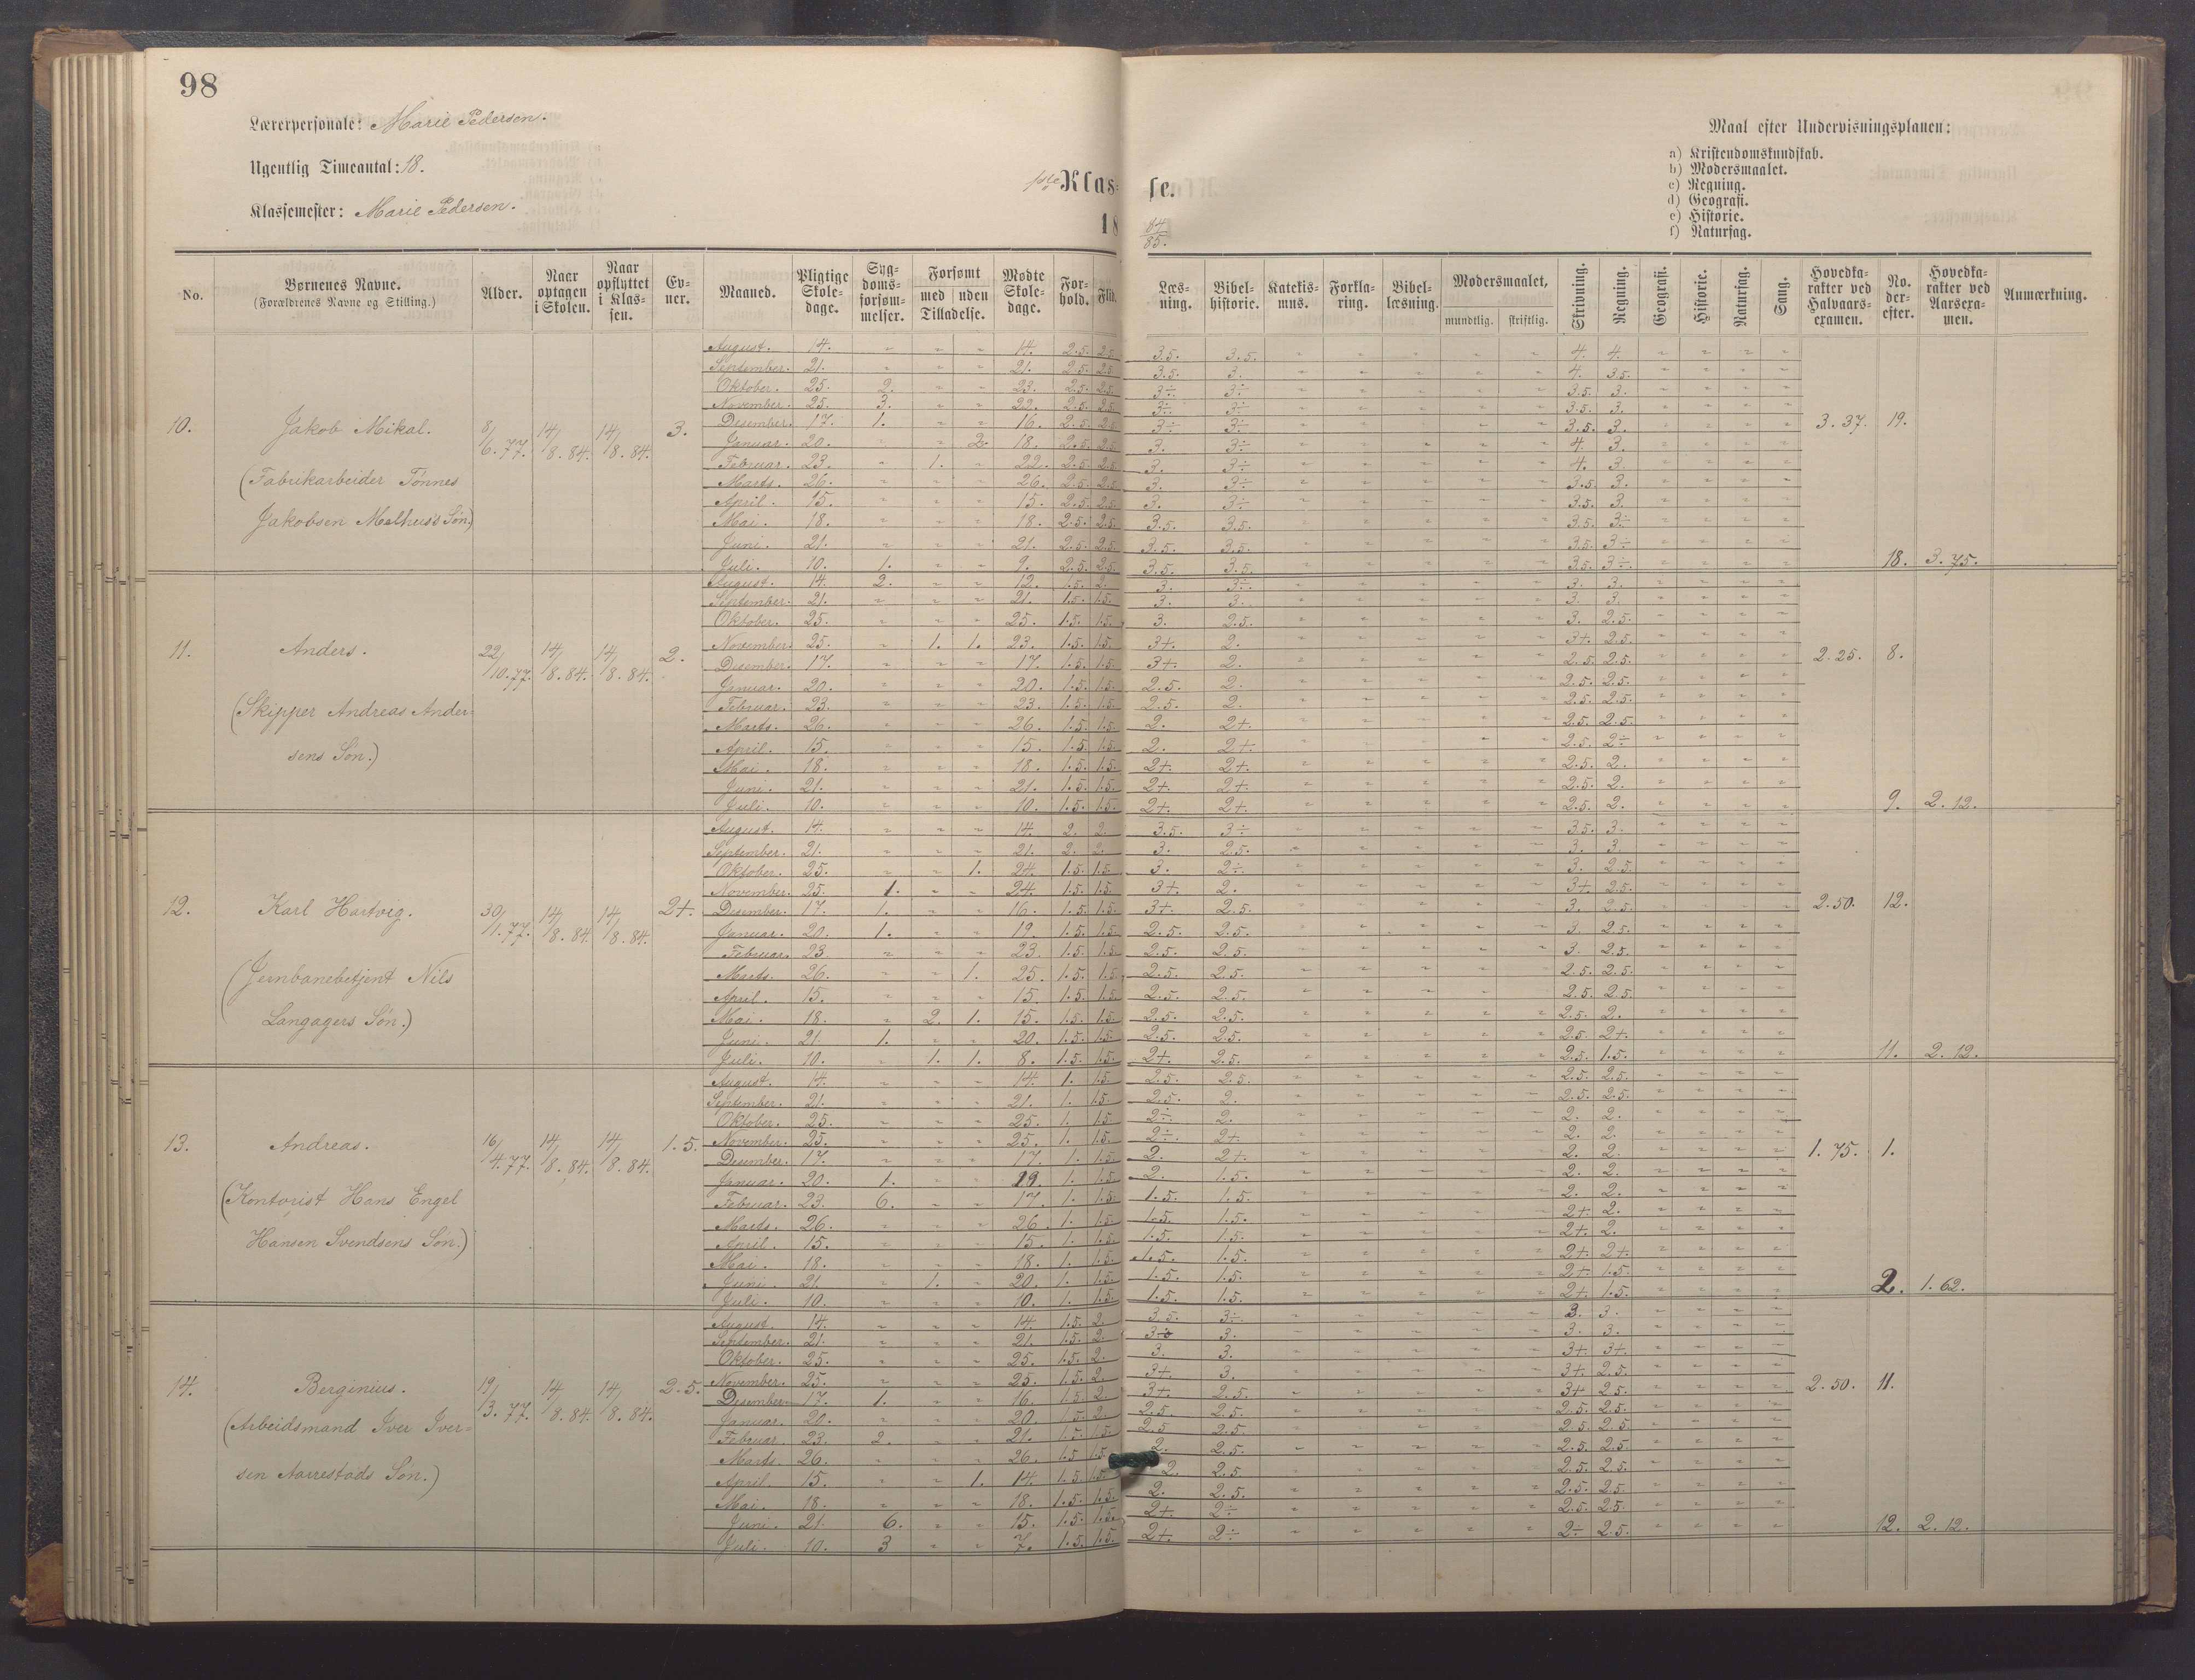 98
Lærerpersonale: Marie Pedersen.
Ugentlig Timeantal: 18.
Klassemester: Marie Pedersen.
1ste Klas-
se.
18
84/85.
Maal efter Undervisningsplanen:
a) Kristendomskundskab.
b) Modersmaalet.
c) Regning.
d) Geografi.
e) Historie.
f) Naturfag.
No. Børnenes Navne. (Forældrenes Navne og Stilling.) Alder. Naar optagen i Skolen. Naar opflyttet i Klassen. Evner. Maaned. Pligtige Skoledage. Sygdomsforsømmelser. Forsømt med uden Tilladelse. Mødte Skoledage. Forhold. Flid. Læsning. Bibelhistorie. Katekismus. Forklaring. Bibellæsning. Modersmaalet, mundtlig. skriftlig. Skrivning. Regning. Geografi. Historie. Naturfag. Sang. Hovedkarakter ved Halvaarsexamen. No. derefter. Hovedkarakter ved Aarsexamen. Anmærkning.
10. Jakob Mikal. 8/6.77. 14/8.84. 14/8.84. 3. 3.37. 19.
(Fabrikarbeider Tönnes
Jakobsen Melhus's Sön.)
August. 14. 14. 2.5. 2.5. 3.5. 3.5. 4. 4.
September. 21. 21. 2.5. 2.5. 3.5. 3. 4. 3.5.
Oktober. 25. 2. 23. 2.5. 2.5. 3÷ 3÷ 3.5. 3.
November. 25. 3. 22. 2.5. 2.5. 3÷ 3÷ 3.5. 3.
Desember. 17. 1. 16. 2.5. 2.5. 3÷ 3÷ 3.5. 3.
Januar. 20. 2. 18. 2.5. 2.5. 3. 3÷ 4. 3.
Februar. 23. 1. 22. 2.5. 2.5. 3. 3÷ 4. 3.
Marts. 26. 26. 2.5. 2.5. 3. 3÷ 3.5. 3.
April. 15. 15. 2.5. 2.5. 3. 3÷ 3.5. 3.
Mai. 18. 18. 2.5. 2.5. 3.5. 3.5. 3.5. 3÷
Juni. 21. 21. 2.5. 2.5. 3.5. 3.5. 3.5. 3÷
Juli. 10. 1. 9. 2.5. 2.5. 3.5. 3.5. 3.5. 3÷ 18. 3.75.
11. Anders. 22/10.77. 14/8.84. 14/8.84. 2. 2.25. 8.
(Skipper Andreas Ander-
sens Sön.)
August. 14. 2. 12. 1.5. 2. 3. 3÷ 3. 3.
September. 21. 21. 1.5. 1.5. 3. 3. 3. 3.
Oktober. 25. 25. 1.5. 1.5. 3. 2.5. 3. 2.5.
November. 25. 1. 1. 23. 1.5. 1.5. 3+. 2. 3+. 2.5.
Desember. 17. 17. 1.5. 1.5. 3+. 2. 2.5. 2.5.
Januar. 20. 20. 1.5. 1.5. 2.5. 2. 2.5. 2.5.
Februar. 23. 23. 1.5. 1.5. 2.5. 2. 2.5. 2.5.
Marts. 26. 26. 1.5. 1.5. 2. 2+. 2.5. 2.5.
April. 15. 15. 1.5. 1.5. 2. 2+. 2.5. 2÷
Mai. 18. 18. 1.5. 1.5. 2+. 2+. 2.5. 2.
Juni. 21. 21. 1.5. 1.5. 2+. 2+. 2.5. 2.
Juli. 10. 10. 1.5. 1.5. 2+. 2+. 2.5. 2. 9. 2.12.
12. Karl Hartvig. 30/1.77. 14/8.84. 14/8.84. 2+. 2.50. 12.
(Jernbanebetjent Nils
Langagers Sön.)
August. 14. 14. 2. 2. 3.5. 3÷ 3.5. 3.
September. 21. 21. 2. 2. 3. 2.5. 3. 3.
Oktober. 25. 1. 24. 1.5. 1.5. 3. 2÷ 3. 2.5.
November. 25. 1. 24. 1.5. 1.5. 3+. 2. 3+. 2.5.
Desember. 17. 1. 16. 1.5. 1.5. 3+. 2.5. 3. 2.5.
Januar. 20. 1. 19. 1.5. 1.5. 2.5. 2.5. 3. 2.5.
Februar. 23 23. 1.5. 1.5. 2.5. 2.5. 3. 2.5.
Marts. 26. 1. 25. 1.5. 1.5. 2.5. 2.5. 2.5. 2.5.
April. 15. 15. 1.5. 1.5. 2.5. 2.5. 2.5. 2.5.
Mai. 18. 2. 1. 15. 1.5. 1.5. 2.5. 2.5. 2.5. 2.
Juni. 21. 1. 20. 1.5. 1.5. 2.5. 2.5. 2.5. 2+.
Juli. 10. 1. 1. 8. 1.5. 1.5. 2+. 2.5. 2.5. 1.5. 11. 2.12.
13. Andreas. 16/4.77. 14/8.84. 14/8.84. 1.5. 1.75. 1.
(Kontorist Hans Engel
Hansen Svendsens Sön.)
August. 14. 14. 1. 1.5. 2.5. 2.5. 2.5. 2.5.
September. 21. 21. 1. 1.5. 2.5. 2. 2.5. 2.5.
Oktober. 25. 25. 1. 1.5. 2÷ 2. 2. 2.
November. 25. 25. 1. 1.5. 2÷. 2+. 2. 2.
Desember. 17. 17. 1. 1.5. 2. 2+. 2. 2.
Januar. 20. 1. 19. 1. 1.5. 2. 1.5. 2. 2.
Februar. 23. 6. 17. 1. 1.5. 1.5. 1.5. 2. 2.
Marts. 26. 26. 1. 1.5. 1.5. 1.5. 2+. 2.
April. 15. 15. 1. 1.5. 1.5. 1.5. 2+. 2.
Mai. 18. 18. 1. 1.5. 1.5. 1.5. 2+. 2+.
Juni. 21. 1. 20. 1. 1.5. 1.5. 1.5. 2+. 1.5.
Juli. 10. 10. 1. 1.5. 1.5. 1.5. 2+. 1.5. 2. 1.62.
14. Berginius. 19/3.77. 14/8.84. 14/8.84. 2.5. 2.50. 11.
(Arbeidsmand Iver Iver-
sen Aarrestads Sön.)
August. 14. 14. 1.5. 2. 3.5. 3÷ 3. 3.
September. 21. 21. 1.5. 2. 3. 3. 3.
Oktober. 25. 25. 1.5. 2. 3. 3. 3+. 3+.
November. 25. 25. 1.5. 2. 3+. 3. 3+. 2.5.
Desember. 17. 1. 16. 1.5. 2. 3+. 2.5. 3+. 2.5.
Januar. 20. 20. 1.5. 2. 2.5. 2.5. 2.5. 2.5.
Februar. 23. 2. 21. 1.5. 1.5. 2.5 2.5. 2.5. 2.5.
Marts. 26. 26. 1.5 1.5. 2. 2.5. 2.5. 2.5.
April. 15. 1. 14. 1.5. 1.5. 2. 2.5. 2.5. 2.5.
Mai. 18. 18. 1.5. 1.5. 2. 2.5. 2.5. 2.5.
Juni. 21. 6. 15. 1.5. 1.5. 2+. 2÷ 2.5. 2.5.
Juli. 10. 3 7. 1.5. 1.5. 2+. 2÷ 2÷ 2.5. 12. 2.12.